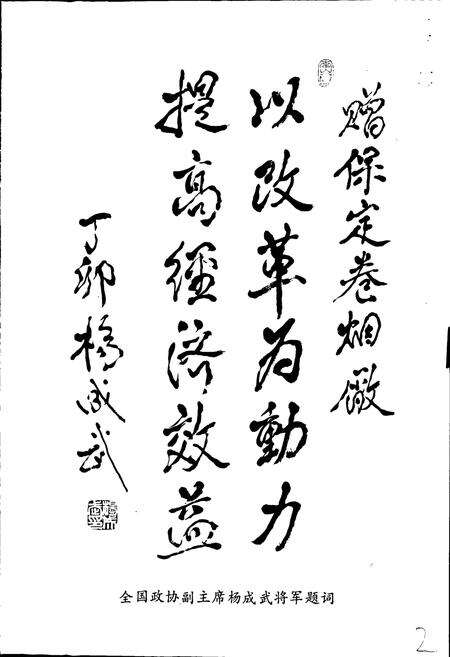 赠保定卷烟厰
以改革为動力
提高經济效益
丁卯杨成武
全国政协副主席杨成武将军题词
2